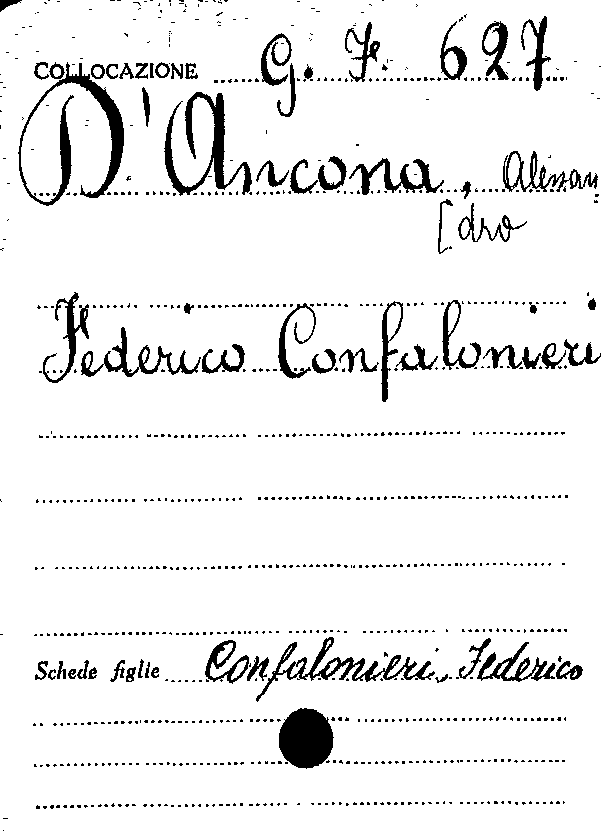 COLLOCAZIONE G. F. 627
D'Ancona, Alessan
[dro
Federico Confalonieri
Schede figlie Confalonieri, Federico